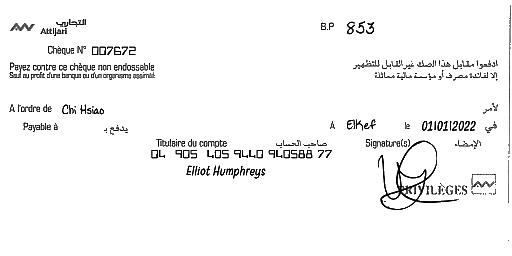 التجاري
Attijari
B.P 853
Chèque N° 007672
Payez contre ce chèque non endossable
Sauf au profit d'une banque ou d'un organisme assimilé
ادفعوا مقابل هذا الصك غير القابل للتظهير
إلا لفائدة مصرف أو مؤسسة مالية مماثلة
A l'ordre de Chi Hsiao لأمر
Payable à يدفع بـ A ElKef le 01/01/2022 في
Titulaire du compte صاحب الحساب Signature(s) الإمضاء
04 905 405 9440 940588 77
Elliot Humphreys
PRIVILÈGES